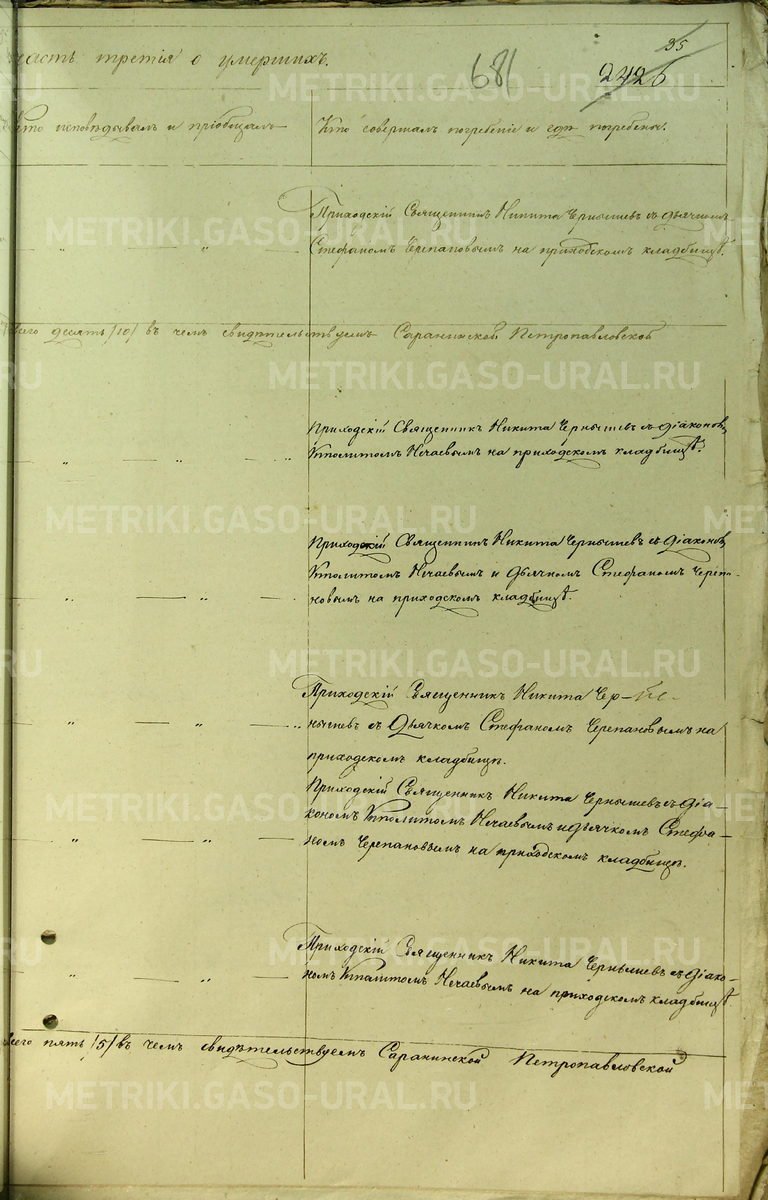 35
681
2426
часть третія о умершихъ.
Кто исповѣдывалъ и пріобщалъ
Кто совершалъ погребеніе и гдѣ погребены.
Приходскій Священникъ Никита Чернышевъ съ дьячкомъ
" " Стефаномъ Черепановымъ на приходскомъ кладбищѣ.
Всего десять /10/ въ чемъ свидѣтельствуемъ Саранинской Петропавловской
Приходскій Священникъ Никита Чернышевъ съ діакономъ
" " Ипполитомъ Нечаевымъ на приходскомъ кладбищѣ.
Приходскій Священникъ Никита Чернышевъ съ діакономъ
Ипполитомъ Нечаевымъ и дьячкомъ Стефаномъ Черепа-
" " новымъ на приходскомъ кладбищѣ.
Приходскій Священникъ Никита Чер-
" " нышевъ съ дьячкомъ Стефаномъ Черепановымъ на
приходскомъ кладбищѣ.
Приходскій Священникъ Никита Чернышевъ съ діа-
кономъ Ипполитомъ Нечаевымъ и дьячкомъ Стефа-
" " номъ Черепановымъ на приходскомъ кладбищѣ.
Приходскій Священникъ Никита Чернышевъ съ діако-
" " номъ Ипполитомъ Нечаевымъ на приходскомъ кладбищѣ.
Всего пять /5/ въ чемъ свидѣтельствуемъ Саранинской Петропавловской
METRIKI.GASO-URAL.RU